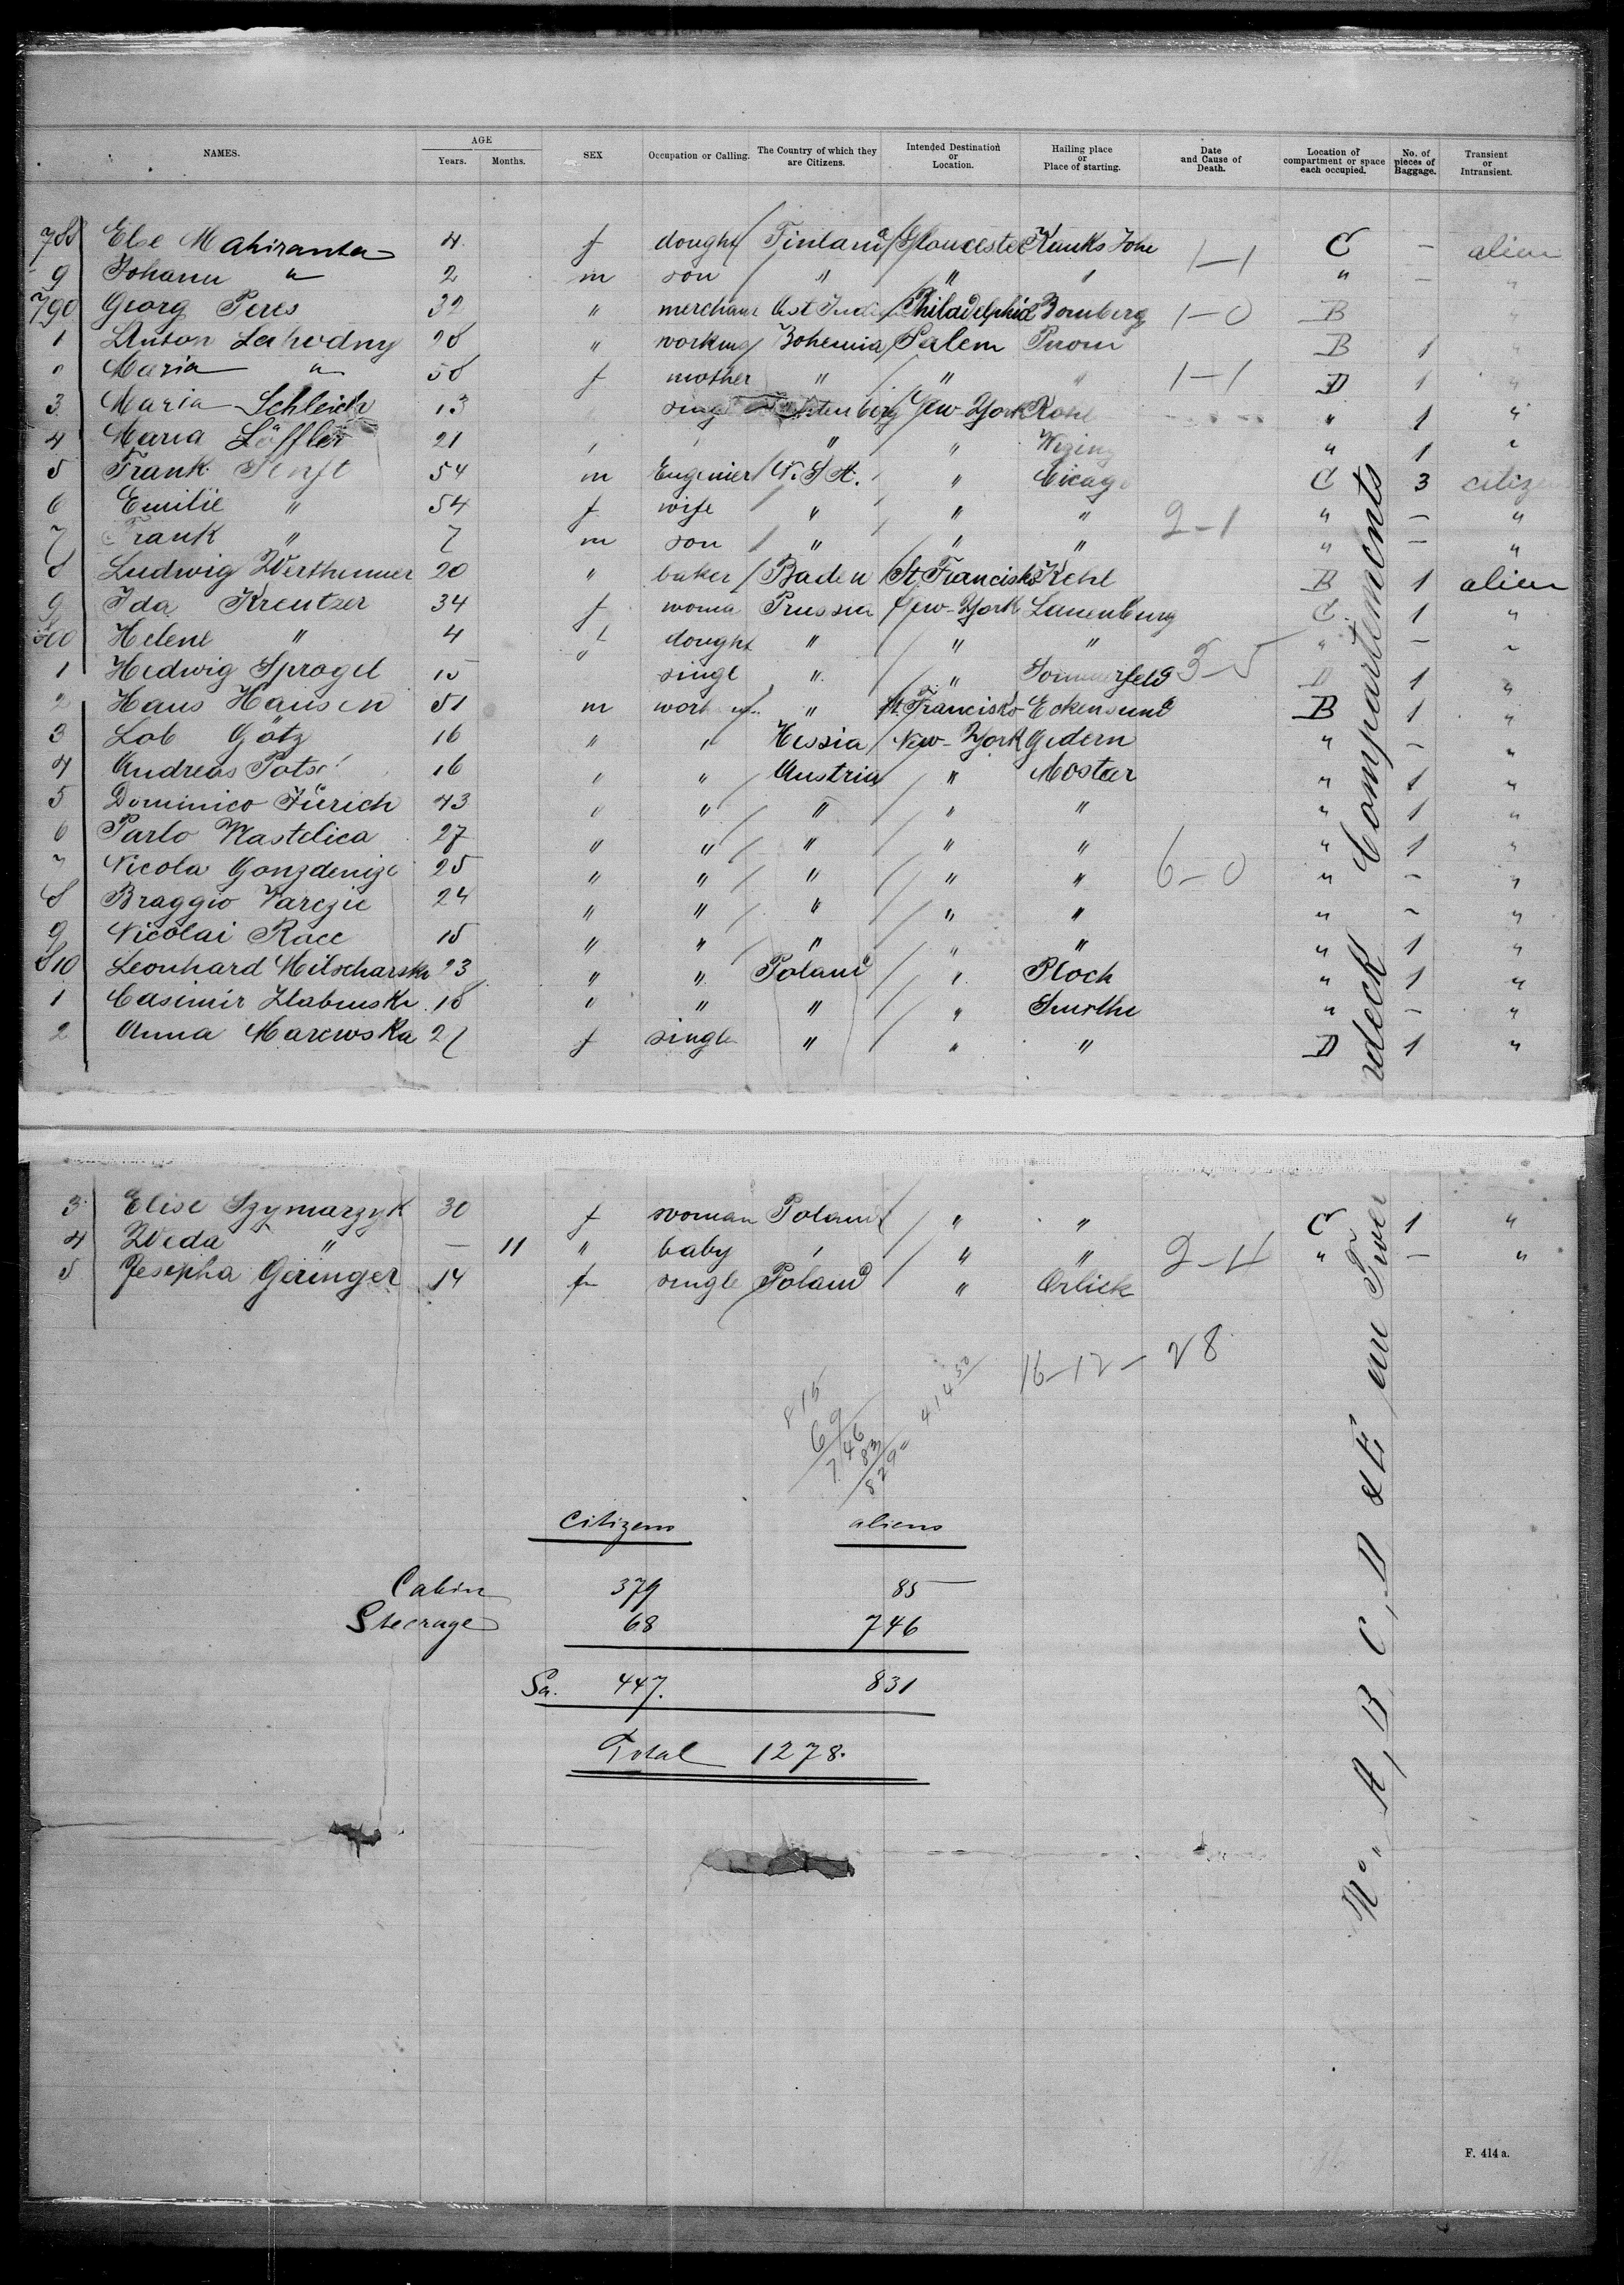 NAMES. AGE Years. Months. SEX Occupation or Calling. The Country of which they are Citizens. Intended Destination or Location. Hailing place or Place of starting. Date and Cause of Death. Location of compartment or space each occupied. No. of pieces of Baggage. Transient or Intransient.
788 Else Mahiranta 4 f dought Finland Gloucester Kauks Johe 1-1 C — alien
9 Johann " 2 m son " " " " — "
790 Georg Peres 32 " merchant Philadelphia Bomberg 1-0 B "
1 Anton Lahodny 28 " working Bohemia Salem B 1 "
Maria " 58 f mother " " " 1-1 D 1 "
3 Maria Schleich 13 New-York " 1 "
4 Maria Löffler 21 " " " 1 "
5 Frank 54 m Engenier U.S.A. " Cicago C 3 citizen
6 Emilie " 54 f wife " " " 2-1 " — "
7 Frank " 7 m son " " " " — "
8 Ludwig Wertheimer 20 " baker Baden St Francisko Kehl B 1 alien
9 Ida Kreutzer 34 f woma Prussia New-York Lauenburg C 1 "
800 Helene " 4 f dought " " " " — "
1 Hedwig Sprogel 15 singl " " Sommerfeld 5 D 1 "
2 Hans Hansen 51 m " St. Francisko Eckensund B 1 "
3 Lob Götz 16 " " Hessia New-York Gedern " — "
4 Andreas 16 " " Austria " Mostar " 1 "
5 Dominico Jurich 43 " " " " " " 1 "
6 Parlo Wastelica 27 " " " " " " 1 "
7 Nicola 25 " " " " " 6-0 " — "
8 Braggio Varezic 24 " " " " " " — "
9 Nicolai Race 15 " " " " " " 1 "
810 Leonhard 23 " " Poland " Plock " 1 "
1 Casimir 18 " " " " " — "
2 Anna Marewska f single " " " D 1 "
3 Elise Szymarzyk 30 f woman Poland " " C 1 "
4 Weda " — 11 " baby " " " " — "
5 Jesepha Geringer 14 f single Poland " Orlick
16-12-28
815
69
746
83
829
414 50
Citizens aliens
Cabin 379 85
Steerage 68 746
Sa. 447. 831
Total 1278.
No. A, B, C, D & E im Twee
ndeck Compartements
F. 414 a.